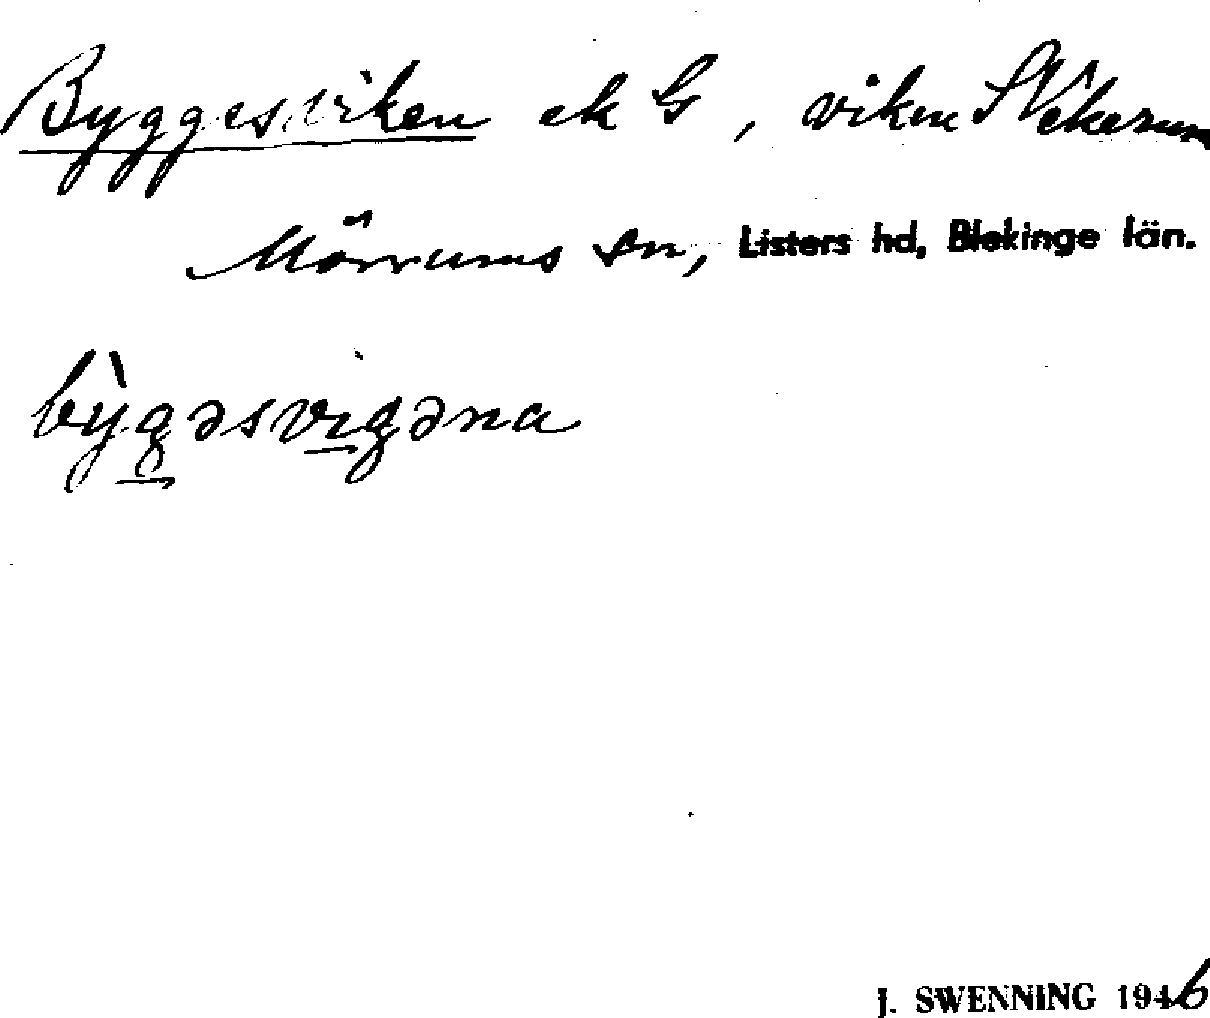 Byggesviken ek G, viken S Vekerum
Mörrums sn, Listers hd, Blekinge län.
bỳgəsvigəna
J. SWENNING 1946